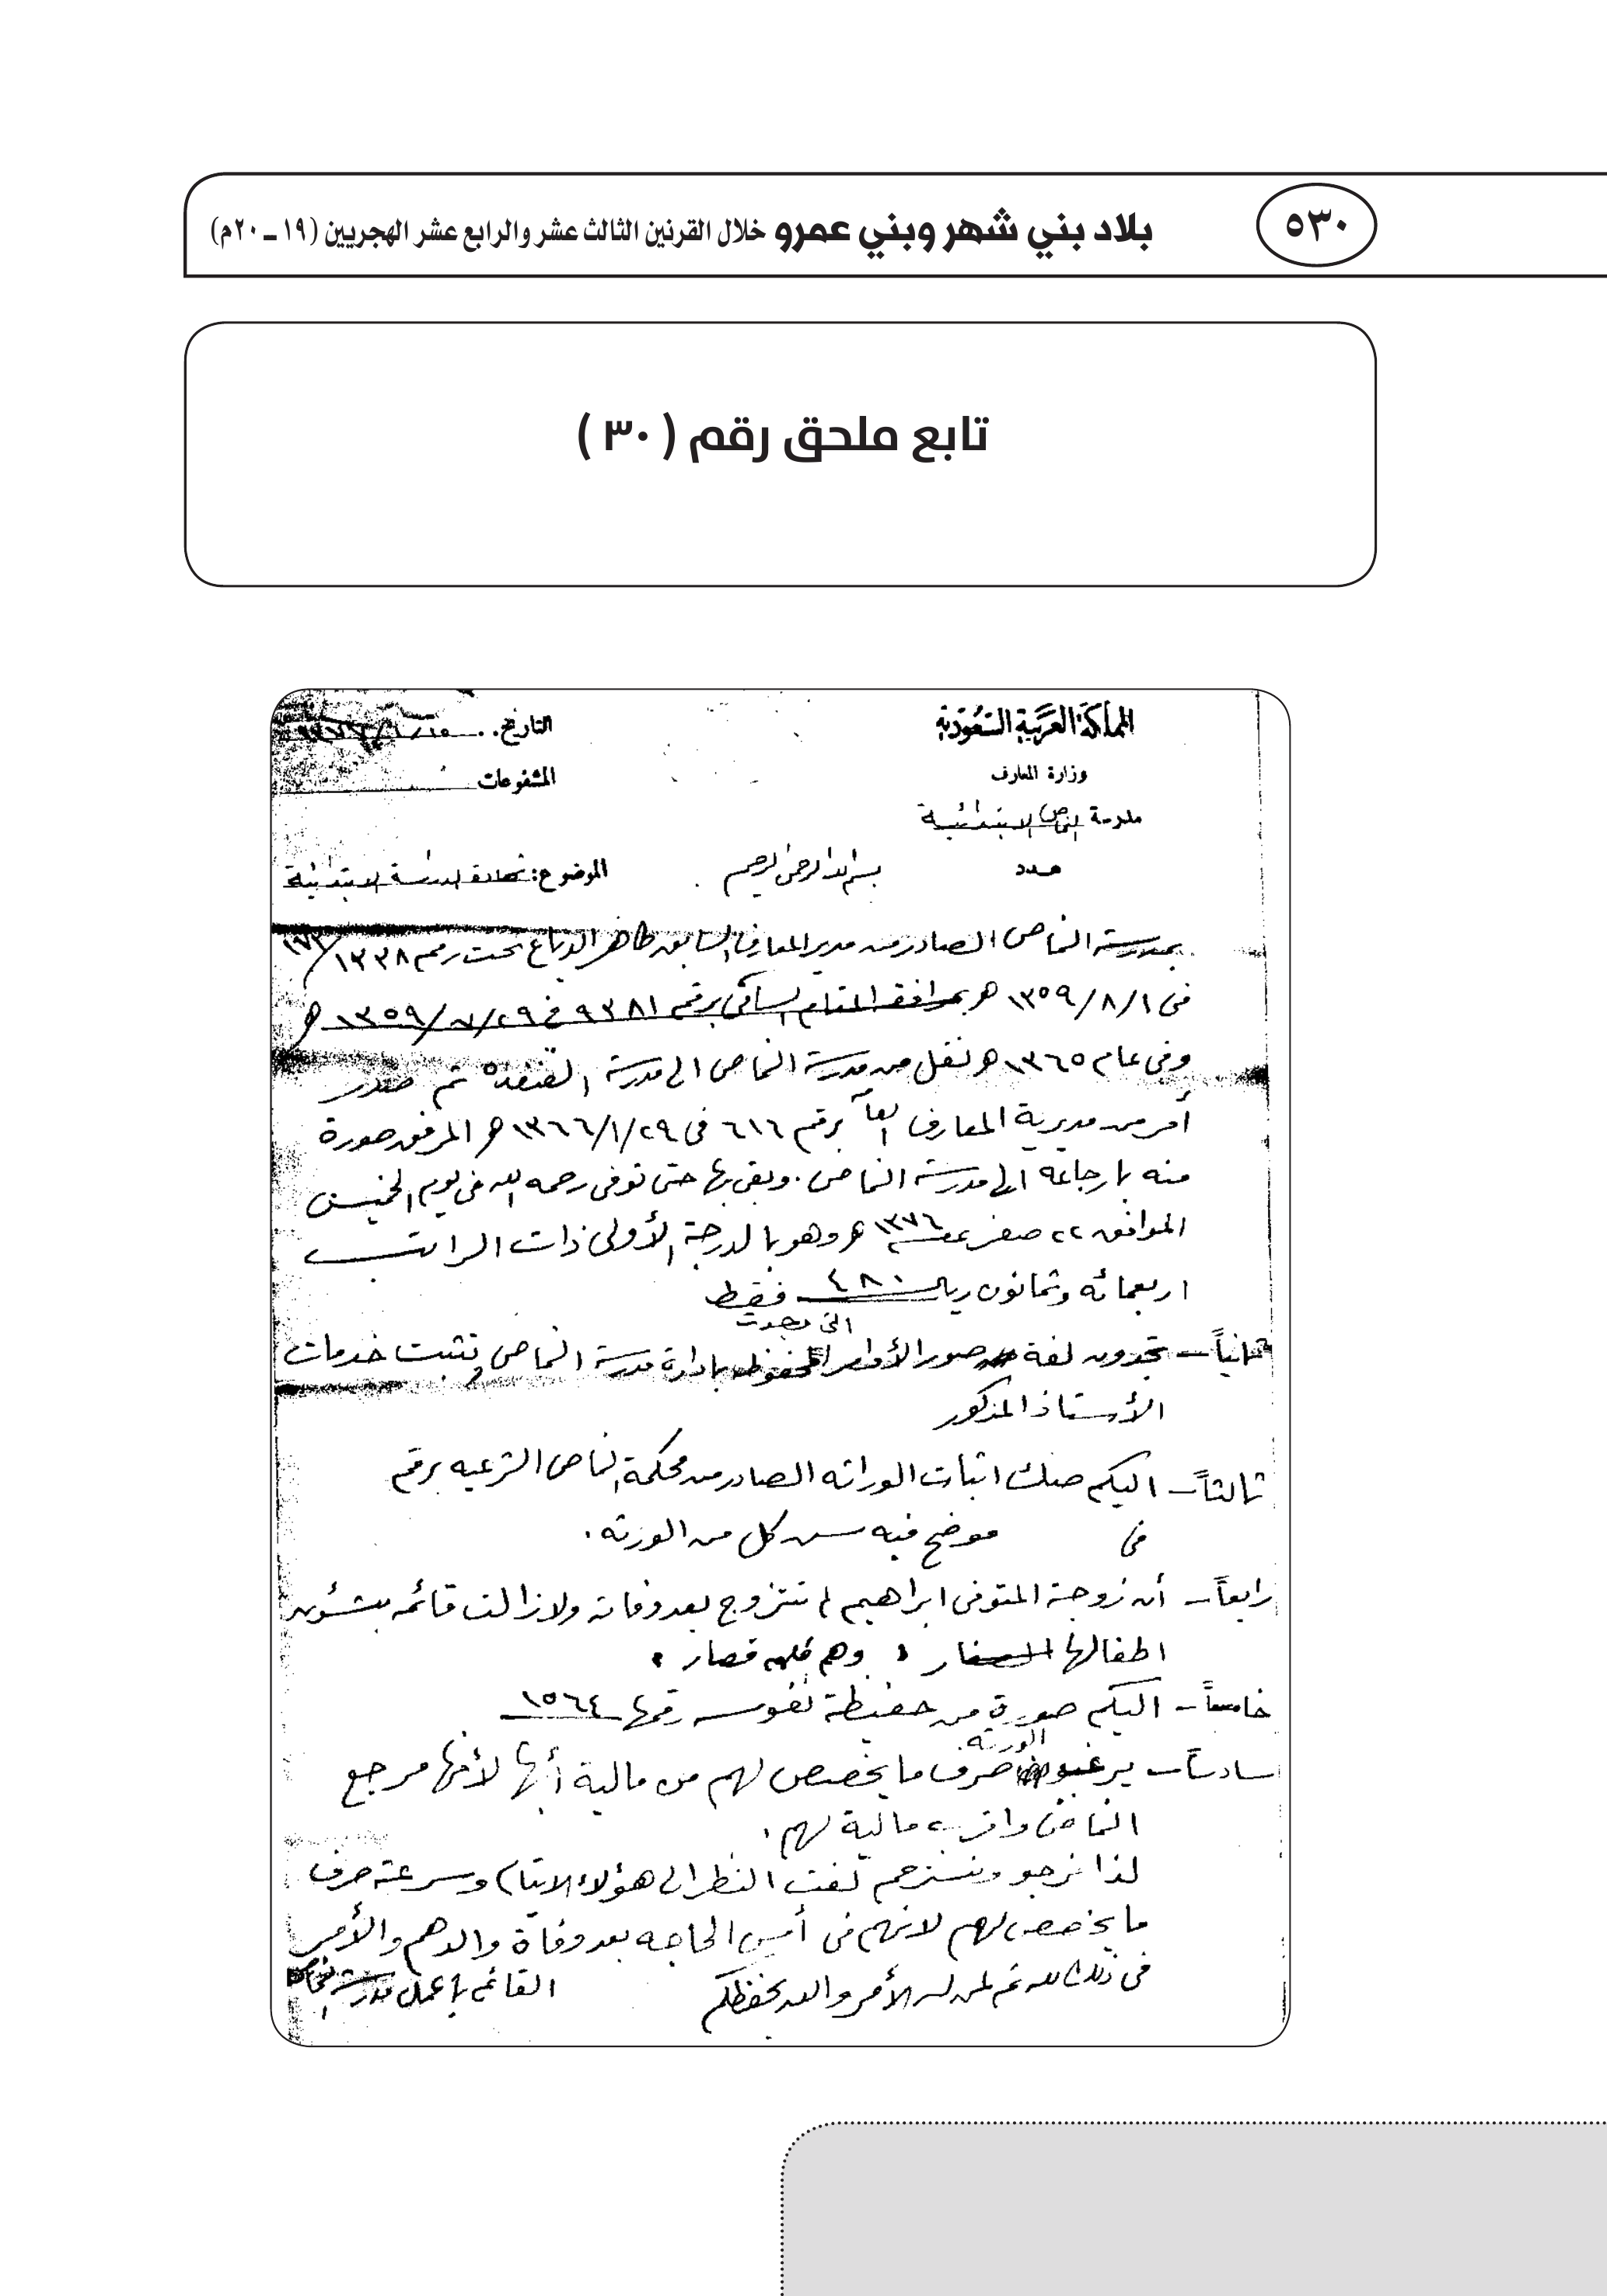 ٥٣٠
بلاد بني شهر وبني عمرو خلال القرنين الثالث عشر والرابع عشر الهجريين (١٩ ـ ٢٠م)
تابع ملحق رقم ( ٣٠ )
المملكة العربية السعودية
التاريخ
وزارة المعارف
المشفوعات
مدرسة النماص الابتدائية
عدد
بسم الله الرحمن الرحيم
الموضوع: شهادة الدراسة الابتدائية
بمدرسة النماص الصادر من مدير المعارف السابق طاهر الدباغ تحت رقم ١٣٣٨/١٧٣
فى ١٣٥٩/٨/١ هـ بموافقة المقام السامى برقم ٩٣٨١ في ١٣٥٩/٧/٢٩ هـ
وفى عام ١٣٦٥ هـ نقل من مدرسة النماص الى مدرسة القنفذة ثم صدر
أمر من مديرية المعارف العامة برقم ٦١٦ فى ١٣٦٦/١/٢٩ هـ المرفق صورة
منه بارجاعه الى مدرسة النماص . وبقى بها حتى توفى رحمه الله فى يوم الخميس
الموافق ٢٢ صفر عام ١٣٧٦ هـ وهو بالدرجة الأولى ذات الراتب
اربعمائه وثمانون ريال ٤٨٠ فقط
التى وجدت
ثانياً – تجدون لفة صور الأوامر المحفوظه بادارة مدرسة النماص وتثبت خدمات
الأستاذ المذكور
ثالثاً – اليكم صك اثبات الوراثه الصادر من محكمة النماص الشرعيه برقم
فى موضح فيه سن كل من الورثه .
رابعاً – أن زوجة المتوفى ابراهيم لم تتزوج بعد وفاته ولازالت قائمه بشئون
اطفالها الصغار وهم قصار
خامساً – اليكم صورة من حفيظة نفوسه رقمها ١٥٦٤
الورثه
سادساً – يرغبون صرف ما يخصص لهم من مالية أبها لأنها مرجع
النماص واقرب مالية لهم .
لذا نرجو ونسترحم لفت النظر الى هؤلاء الايتام وسرعة صرف
ما يخصص لهم لانهم فى أمس الحاجه بعد وفاة والدهم والأمر
فى ذلك لله ثم لمن له الأمر والله يحفظكم
القائم بأعمال مدرسة النماص